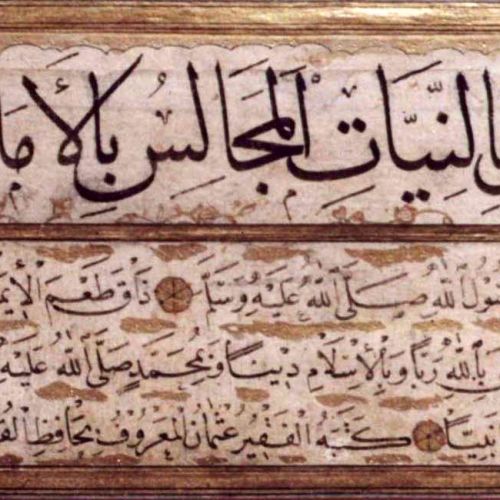 بِالنِّيَّاتِ الْمَجَالِسُ بِالْأَمَا
سُولُ اللهِ صَلَّى اللهُ عَلَيْهِ وَسَلَّمَ ذَاقَ طَعْمَ الْإِيمَ
بِاللهِ رَبًّا وَبِالْإِسْلَامِ دِينًا وَبِمُحَمَّدٍ صَلَّى اللهُ عَلَيْهِ
نَبِيًّا كَتَبَهُ الْفَقِيرُ عُثْمَانُ الْمَعْرُوفُ بِحَافِظِ الْقُ